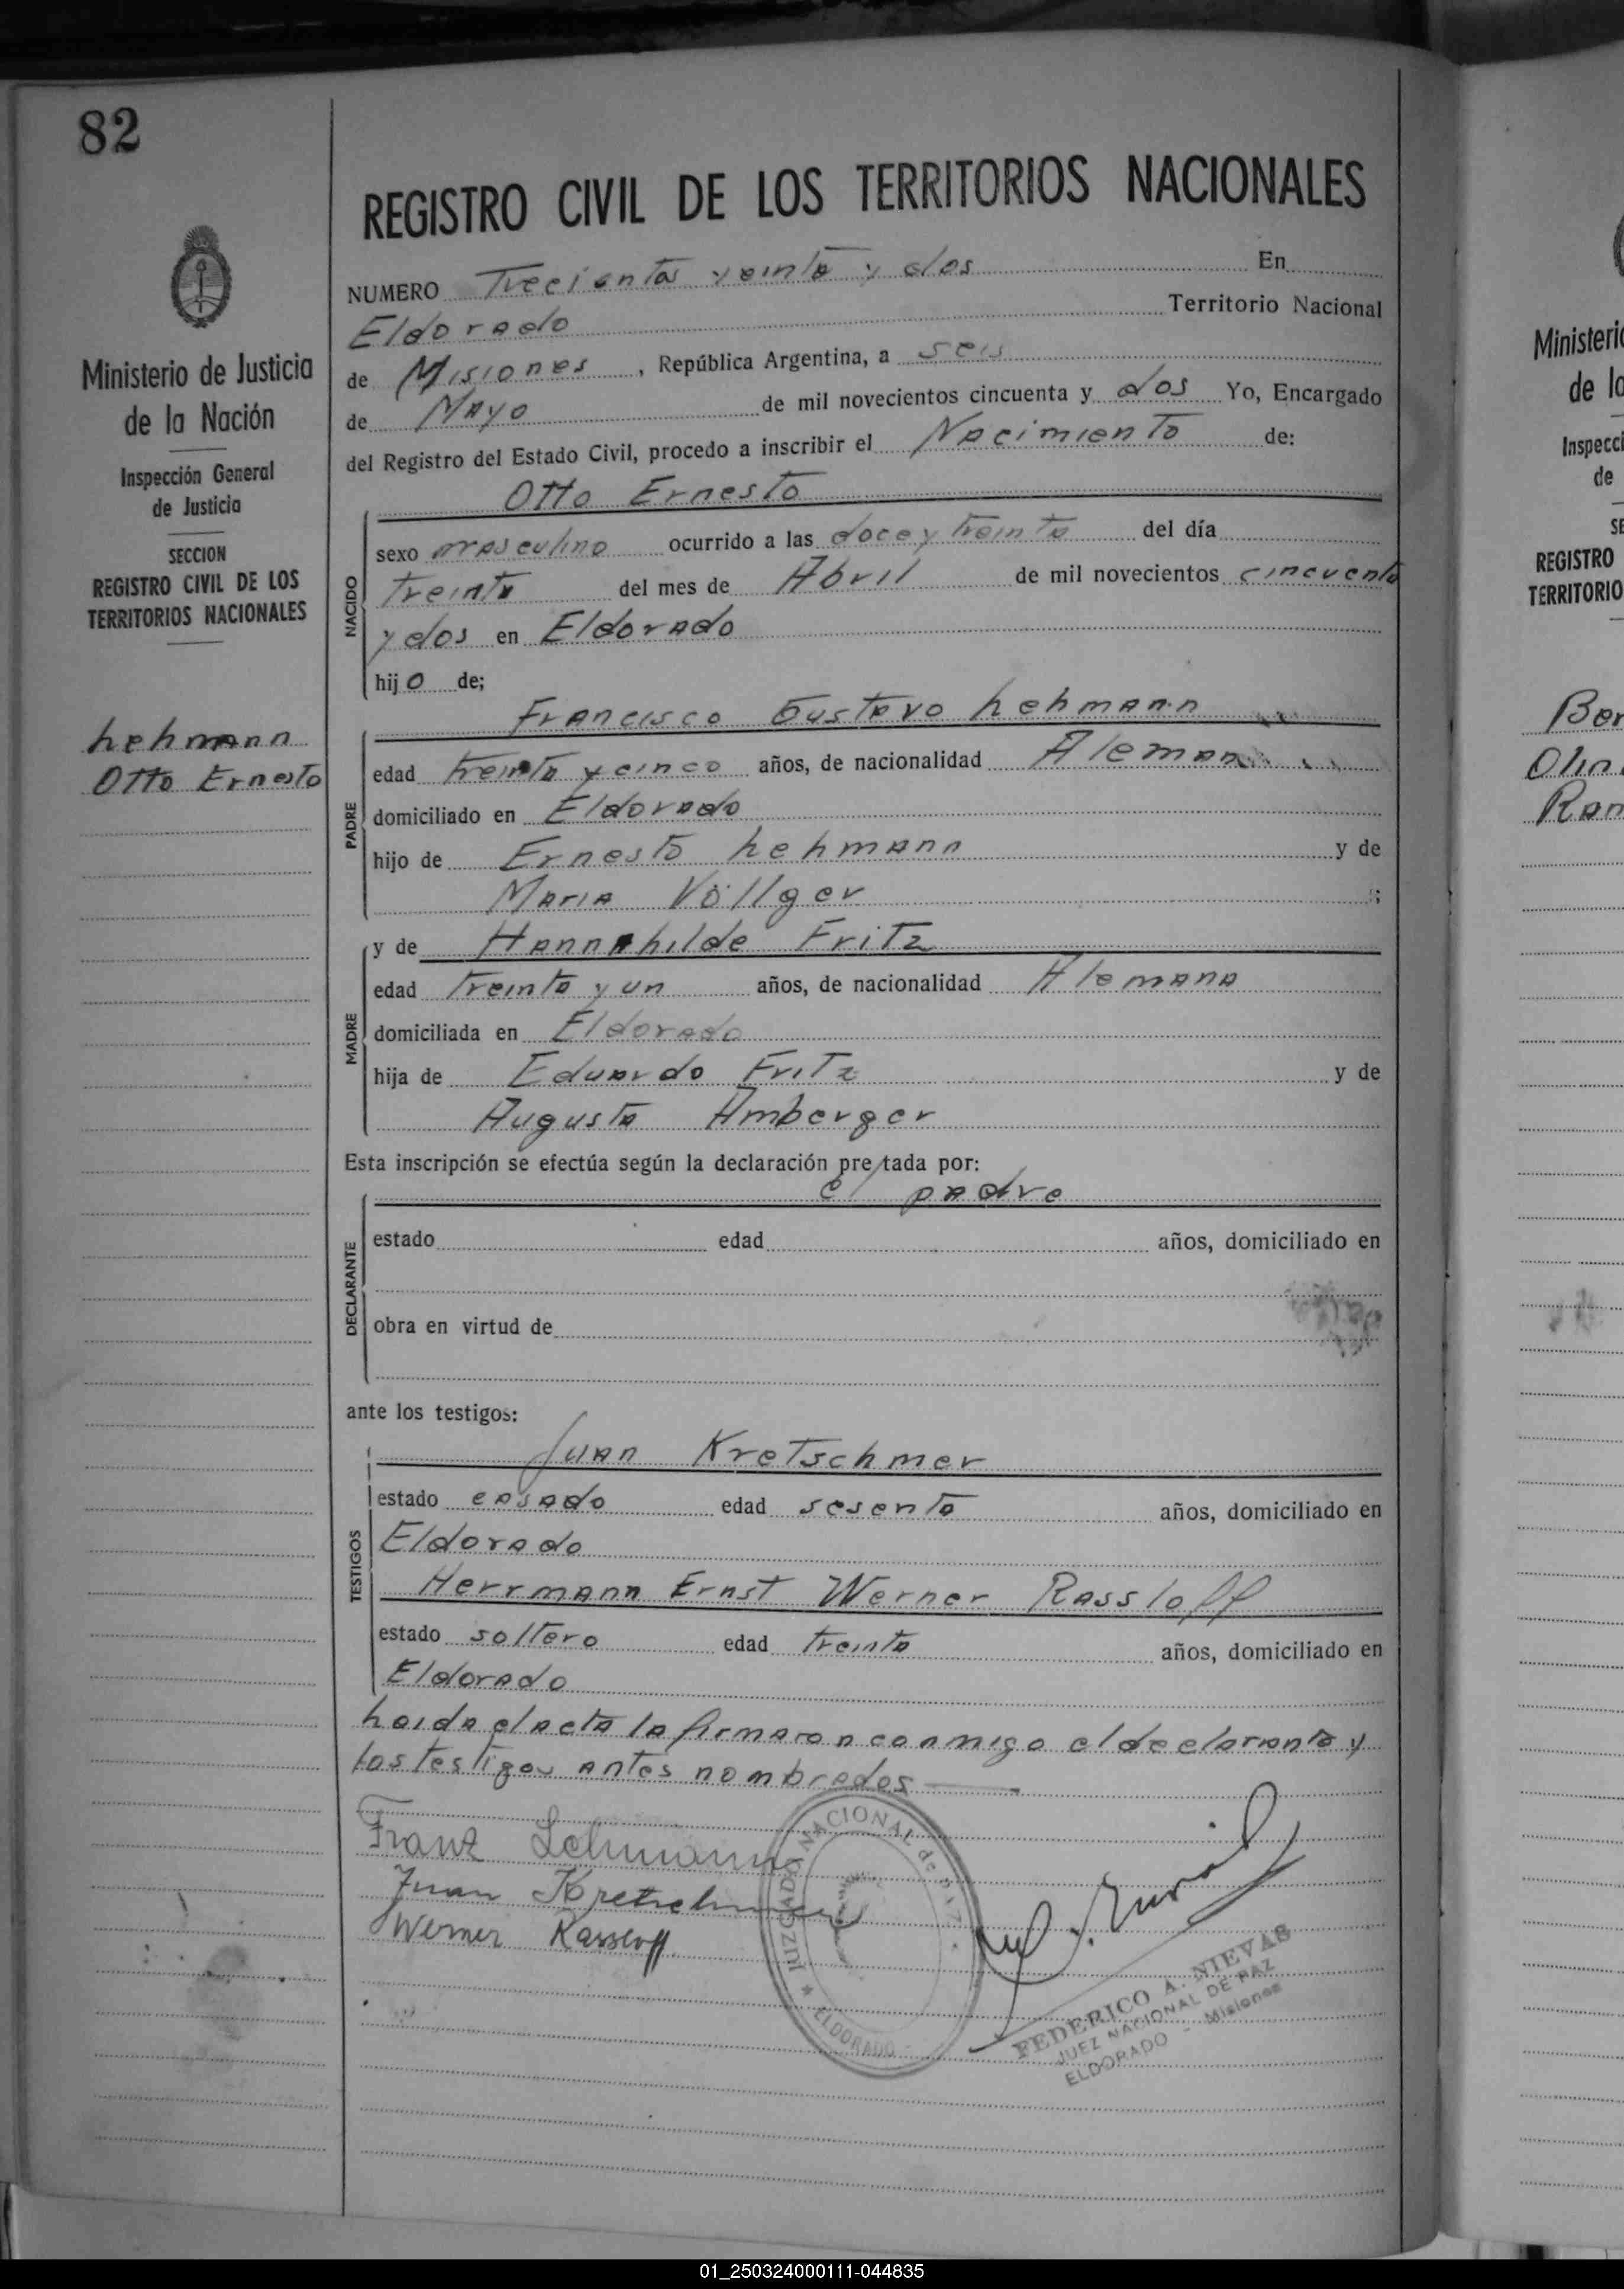 82
REGISTRO CIVIL DE LOS TERRITORIOS NACIONALES
Ministerio de Justicia
de la Nación
Inspección General
de Justicia
SECCION
REGISTRO CIVIL DE LOS
TERRITORIOS NACIONALES
Lehmann
Otto Ernesto
NUMERO Trecientos veinte y dos En
Eldorado Territorio Nacional
de Misiones, República Argentina, a seis
de Mayo de mil novecientos cincuenta y dos Yo, Encargado
del Registro del Estado Civil, procedo a inscribir el Nacimiento de:
Otto Ernesto
NACIDO
sexo masculino ocurrido a las doce y treinta del día
treinta del mes de Abril de mil novecientos cincuenta
y dos en Eldorado
hijo de;
Francisco Gustavo Lehmann
PADRE
edad treinta y cinco años, de nacionalidad Aleman
domiciliado en Eldorado
hijo de Ernesto Lehmann y de
Maria Völlger ;
MADRE
y de Hannahilde Fritz
edad treinta y un años, de nacionalidad Alemana
domiciliada en Eldorado
hija de Eduardo Fritz y de
Augusta Amberger
Esta inscripción se efectúa según la declaración pre/tada por:
el padre
DECLARANTE
estado edad años, domiciliado en
obra en virtud de
ante los testigos:
Juan Kretschmer
TESTIGOS
estado casado edad sesenta años, domiciliado en
Eldorado
Herrmann Ernst Werner Rassloff
estado soltero edad treinta años, domiciliado en
Eldorado
Leida el acta la firmaron conmigo el declarante y
los testigos antes nombrados
Franz Lehmann
Juan Kretschmer
Werner Rassloff
JUZGADO NACIONAL de PAZ
ELDORADO
FEDERICO A. NIEVAS
JUEZ NACIONAL DE PAZ
ELDORADO - Misiones
Ministerio
de la
Inspecci
de
SE
REGISTRO
TERRITORIO
01_250324000111-044835